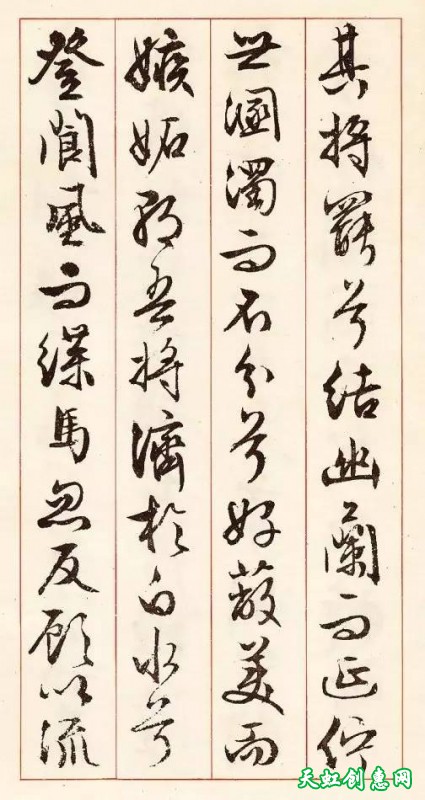 其將罷兮結幽蘭而延佇
世溷濁而不分兮好蔽美而
嫉妒朝吾將濟於白水兮
登閬風而緤馬忽反顧以流
天虹创意网